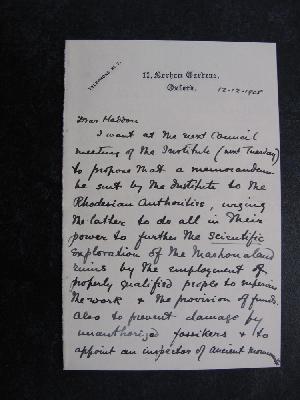 TELEPHONE
11, Norham Gardens,
Oxford.
12-12-1905
Dear Haddon
I want at the next Council
meeting of the Institute (next Tuesday)
to propose that a memorandum
be sent by the Institute to the
Rhodesian Authorities, urging
the latter to do all in their
power to further the scientific
exploration of the Mashonaland
ruins by the employment of
properly qualified people to supervise
the work & the provision of funds.
Also to prevent damage by
unauthorized fossikers & to
appoint an inspector of ancient monuments